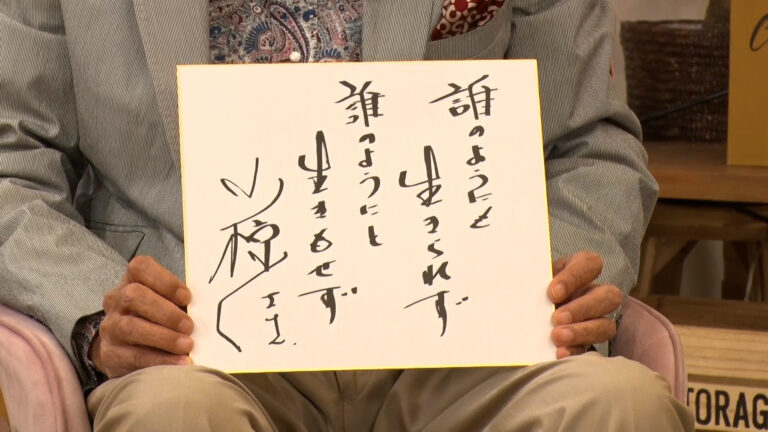 誰のようにも
生きられず
誰のようにと
生きもせず
TORAG